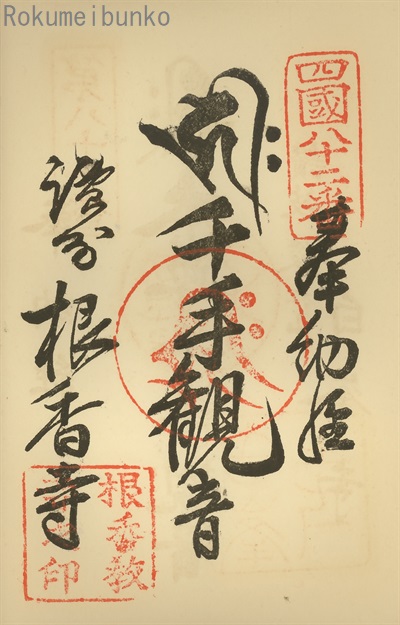 Rokumeibunko
四國八十二番
奉納経
千手観音
根香寺
根香教
印